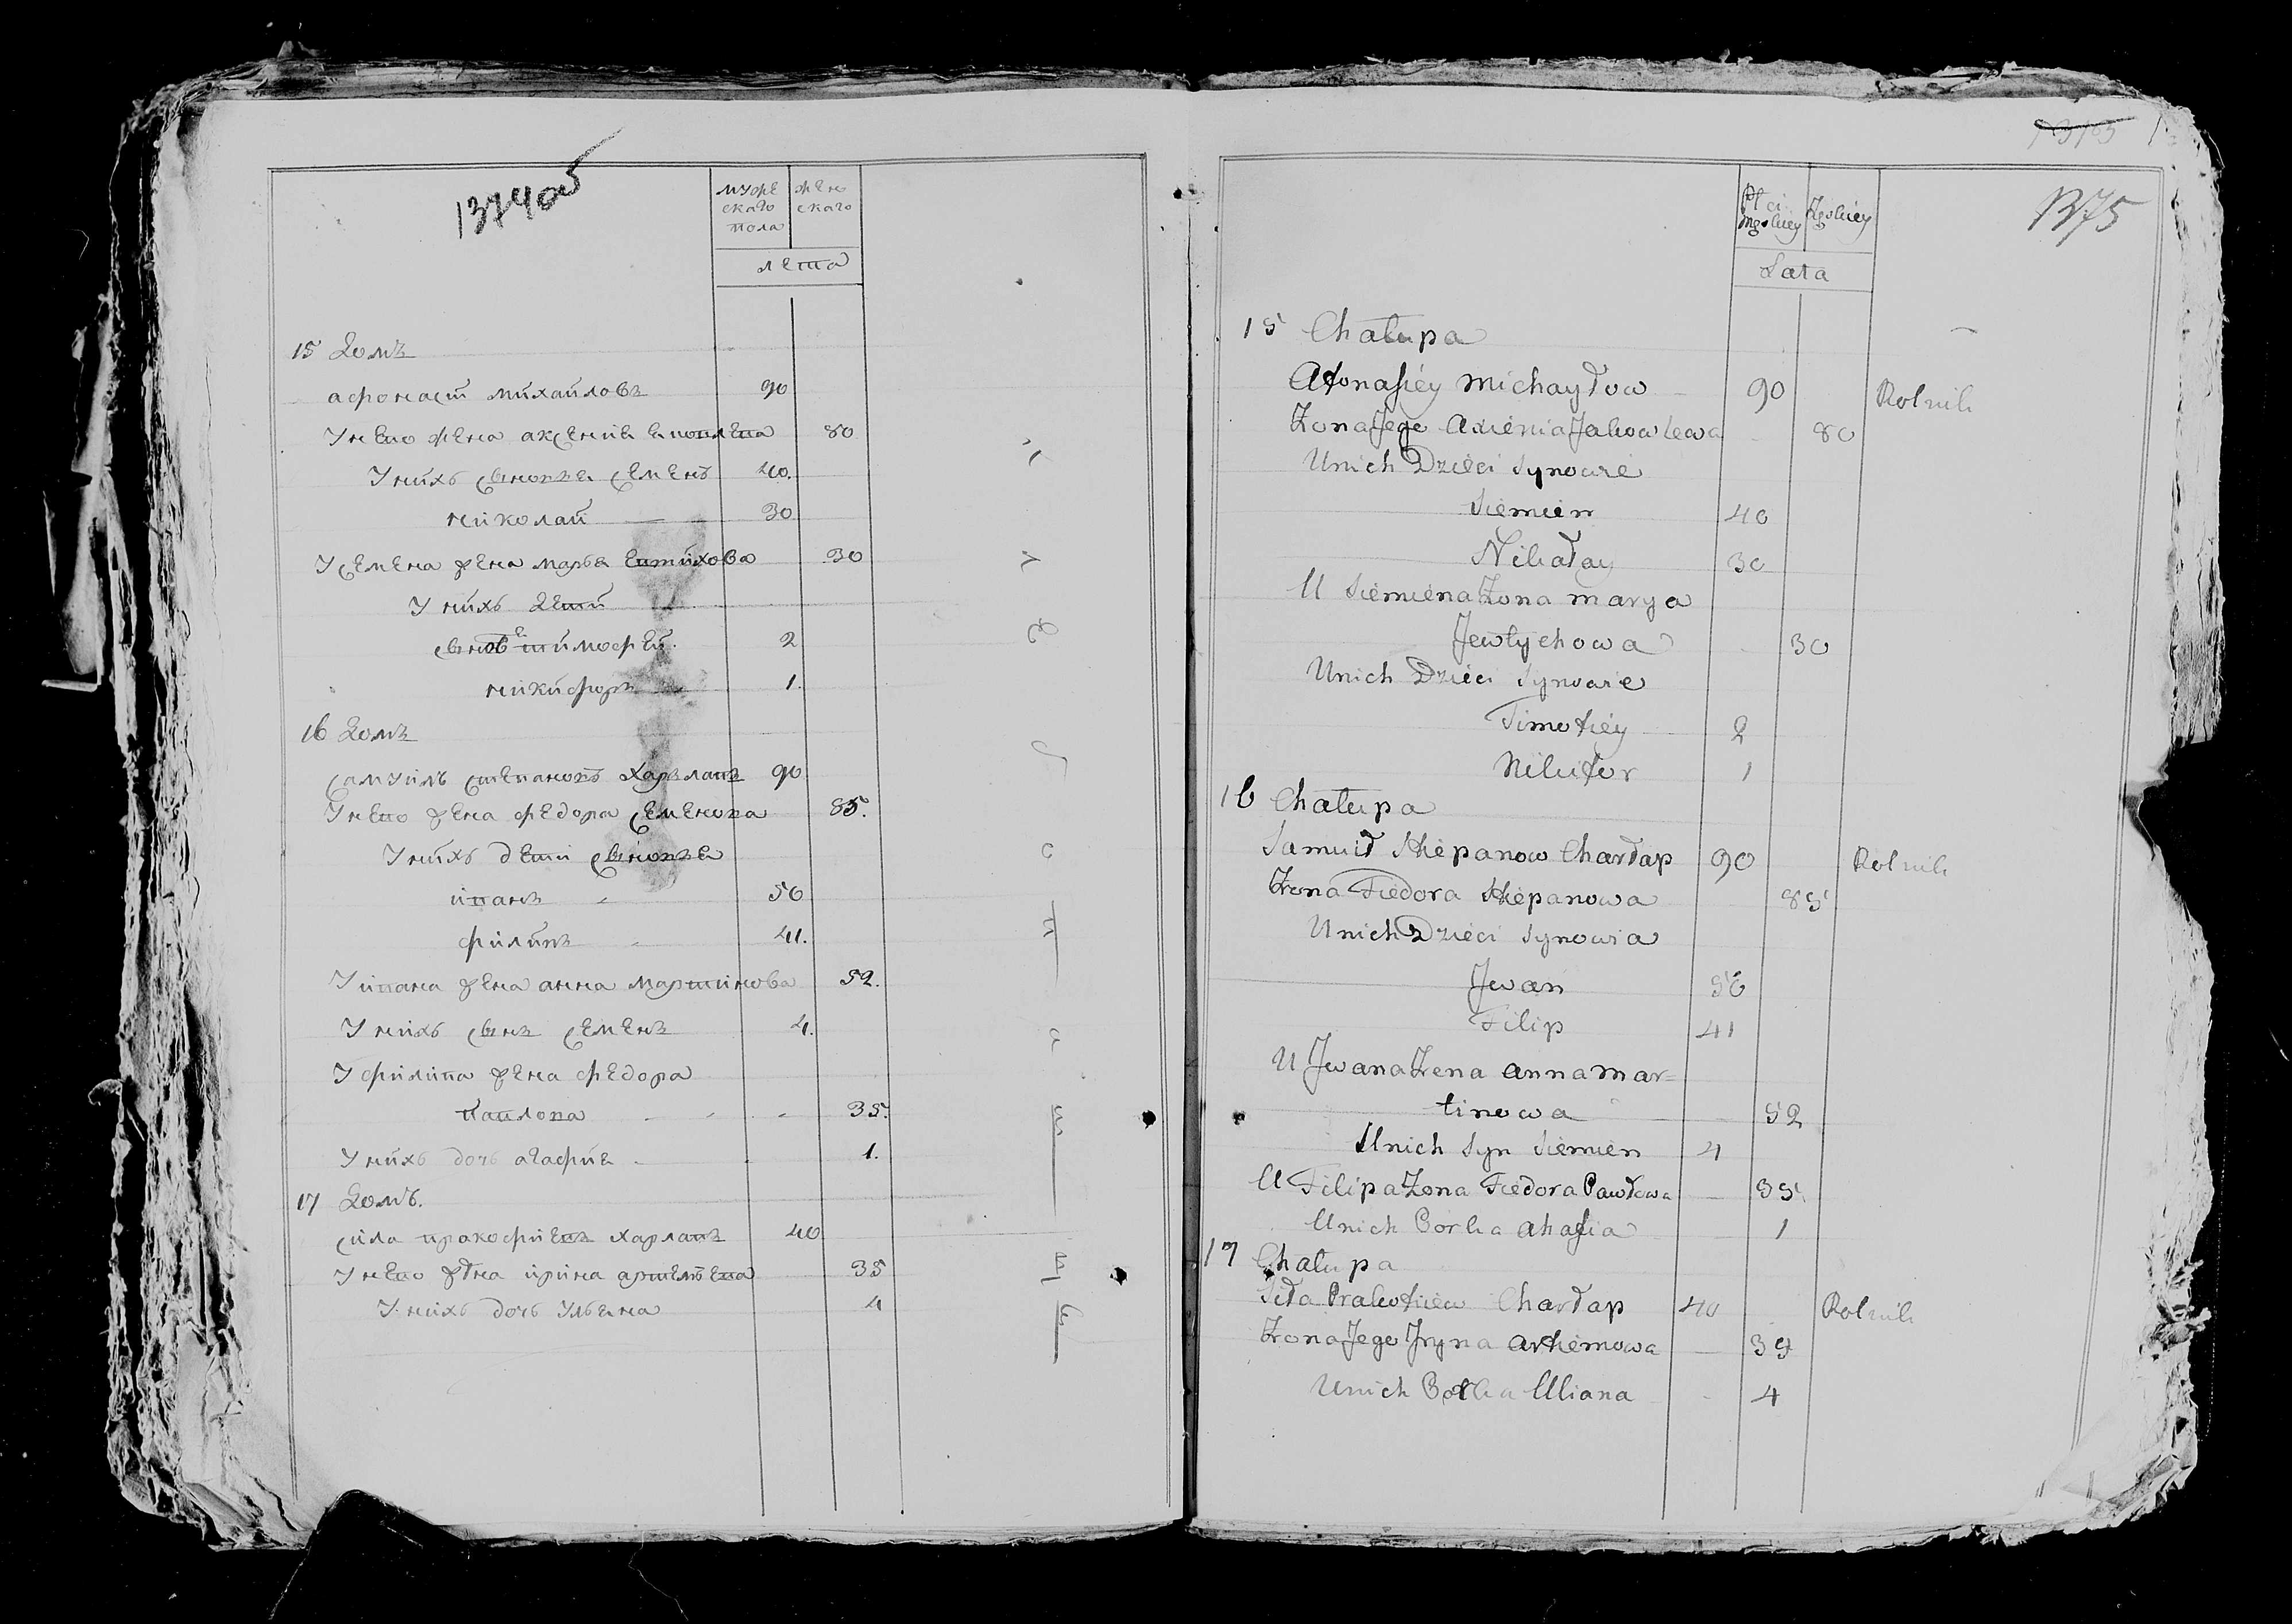 1374об
мужескаго пола
женскаго
лета
15 Домъ
афонасй мйхайловъ 90
У нево жена аксенйя 80
У нйхъ сыновья семенъ 40.
нйколай 30
У семена жена марья евтйхова 30
У нйхъ детй
сыновье тймофей. 2
нйкйфоръ 1.
16 Домъ
самуйлъ степановъ харлапъ 90
У нево жена федора семенова 85.
У нйхъ дети сыновья
йванъ 50
филйпъ 41.
У йвана жена анна мартинова 52.
У нйхъ сынъ семенъ 4.
У филипа жена федора
павлова 35.
У нйхъ дочь агафйя 1.
17 Домъ.
сйла пракофиевъ харлапъ 40
У нево жена ирина артемьева 35
У нйхъ дочь ульяна 4
1375
Płci Męskiey
Żęskiey
Lata
15 Chałupa
Afonasiéy Michayłow 90 Rolnik
Żona Jego Axienia Jakowlewa 80
U nich Dzieci Synowie
Siemien 40
Nikołay 30
U Siemiena Żona Marya
Jewtychowa 30
U nich Dzieci Synowie
Timofiéy 2
Nikifor 1
16 Chałupa
Samuił Stiepanow Charłap 90 Rolnik
Żona Fiedora Stiepanowa 85
U nich Dzieci Synowia
Jwan 50
Filip 41
U Jwana Żona Anna Mar=
tinowa 52
U nich Syn Siemien 4
U Filipa Żona Fiedora Pawłowa 35
U nich Corka Ahafia 1
17 Chałupa
Siła Prakofiew Charłap 40 Rolnik
Żona Jego Jryna Artiemowa 35
U nich Corka Uliana 4